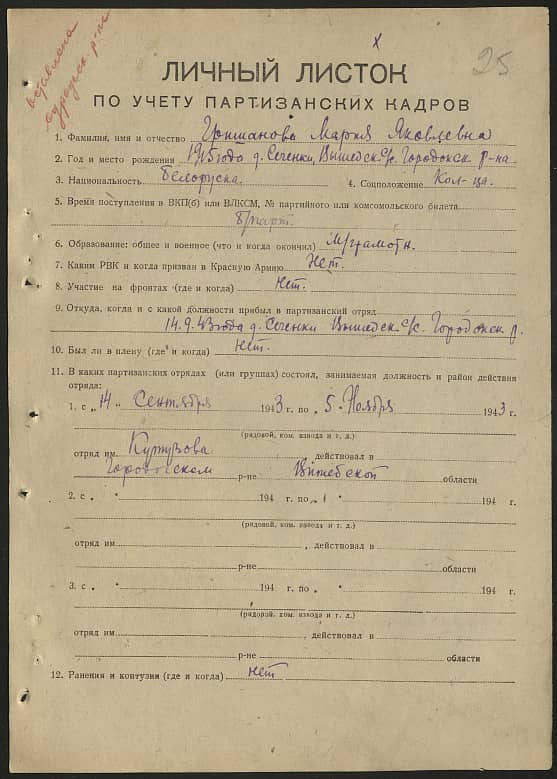 х
25
оставлена
ЛИЧНЫЙ ЛИСТОК
ПО УЧЕТУ ПАРТИЗАНСКИХ КАДРОВ
1. Фамилия, имя и отчество Гришанова Мария Яковлевна
2. Год и место рождения 1915 года д. Сеченки, Вышедск. с/с. Городокск р-на
3. Национальность Белоруска. 4. Соцположение Кол-ца.
5. Время поступления в ВКП(б) или ВЛКСМ, № партийного или комсомольского билета
б/парт.
6. Образование: общее и военное (что и когда окончил) м/грамотн.
7. Каким РВК и когда призван в Красную Армию Нет.
8. Участие на фронтах (где и когда) Нет.
9. Откуда, когда и с какой должности прибыл в партизанский отряд
14.9.43 года д. Сеченки Вышедск. с/с. Городокск р.
10. Был ли в плену (где и когда) Нет.
11. В каких партизанских отрядах (или группах) состоял, занимаемая должность и район действия
отряда:
1. с „14" Сентября 1943 г. по „5" Ноября 1943 г.
(рядовой, ком. взвода и т. д.)
отряд им. Кутузова, действовал в
Городокском р-не Витебской области
2. с „ " 194 г. по „ " 194 г.
(рядовой, ком. взвода и т. д.)
отряд им. , действовал в
р-не области
3. с „ " 194 г. по „ " 194 г.
(рядовой, ком. взвода и т. д.)
отряд им. , действовал в
р-не области
12. Ранения и контузии (где и когда) нет